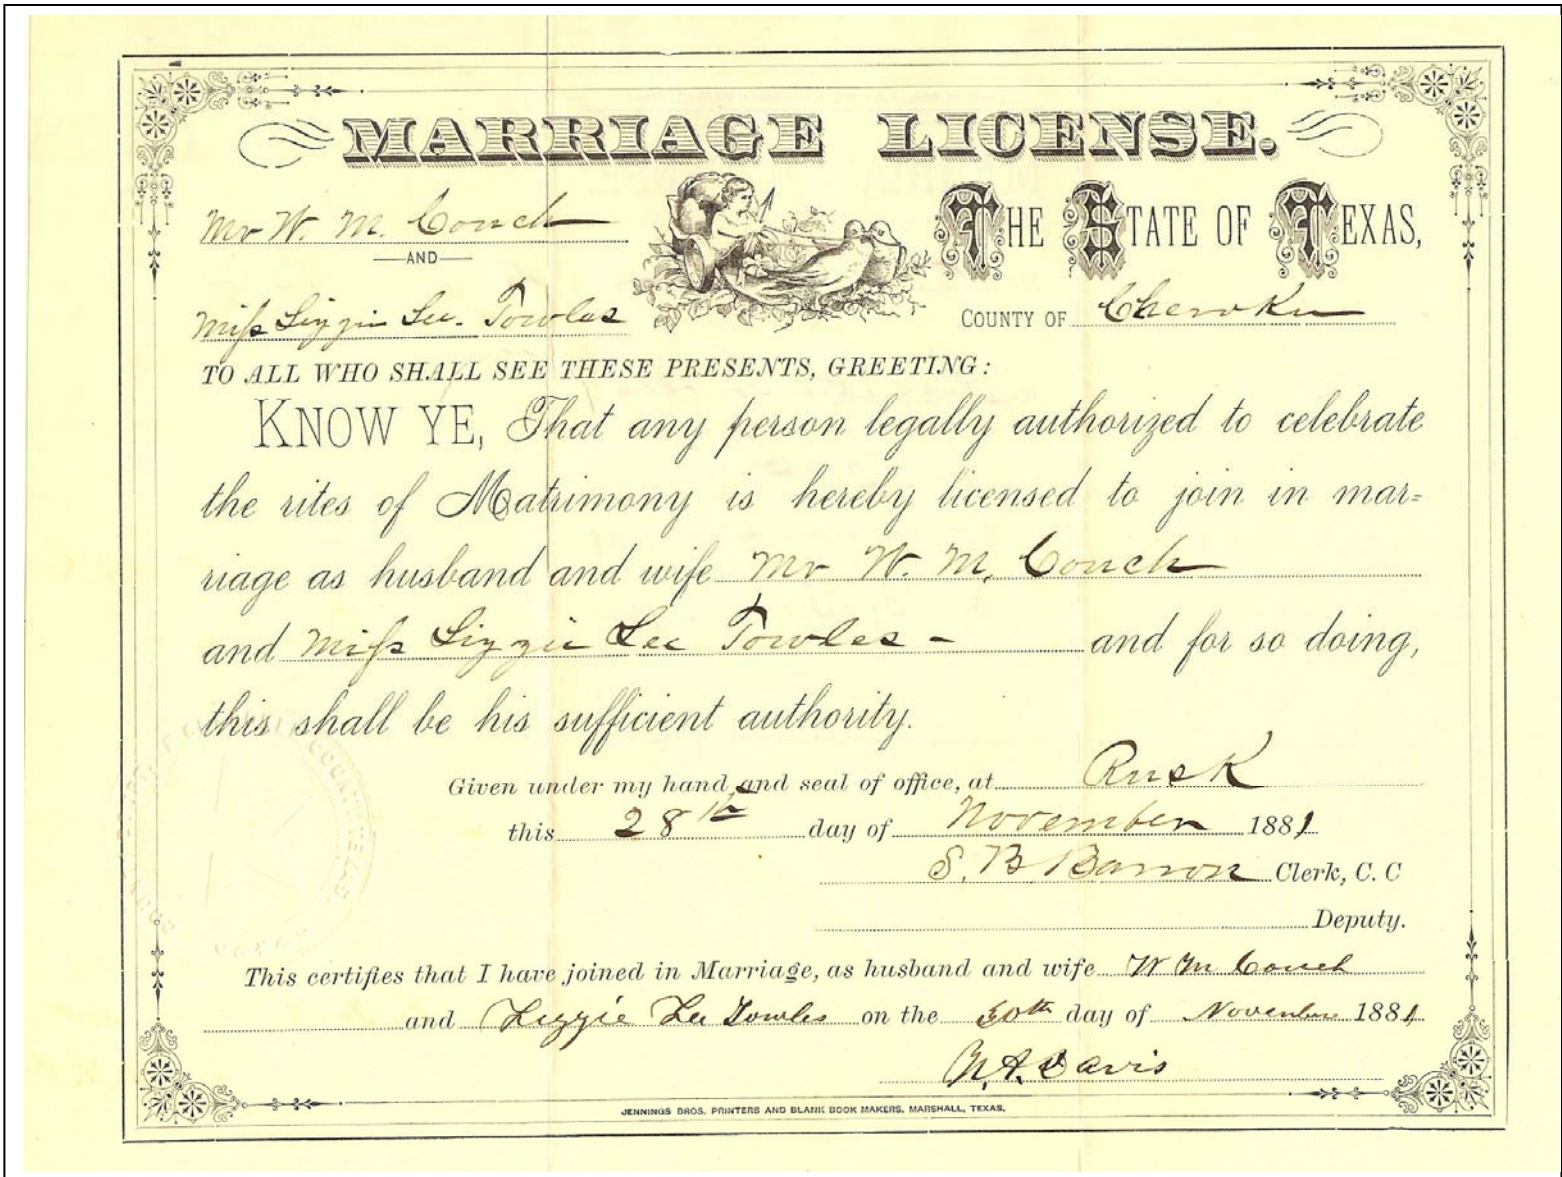 MARRIAGE LICENSE.
Mr W. M. Couch
AND
Miss Lizzie Lee Towles
THE STATE OF TEXAS,
COUNTY OF Cherokee
TO ALL WHO SHALL SEE THESE PRESENTS, GREETING:
KNOW YE, That any person legally authorized to celebrate
the rites of Matrimony is hereby licensed to join in mar=
riage as husband and wife Mr W. M. Couch
and Miss Lizzie Lee Towles - and for so doing,
this shall be his sufficient authority.
Given under my hand and seal of office, at Rusk
this 28th day of November 1881
S. B Barron Clerk, C. C
Deputy.
This certifies that I have joined in Marriage, as husband and wife W M Couch
and Lizzie Lee Towles on the 30th day of November 1881
N. A. Davis
JENNINGS BROS. PRINTERS AND BLANK BOOK MAKERS, MARSHALL, TEXAS.